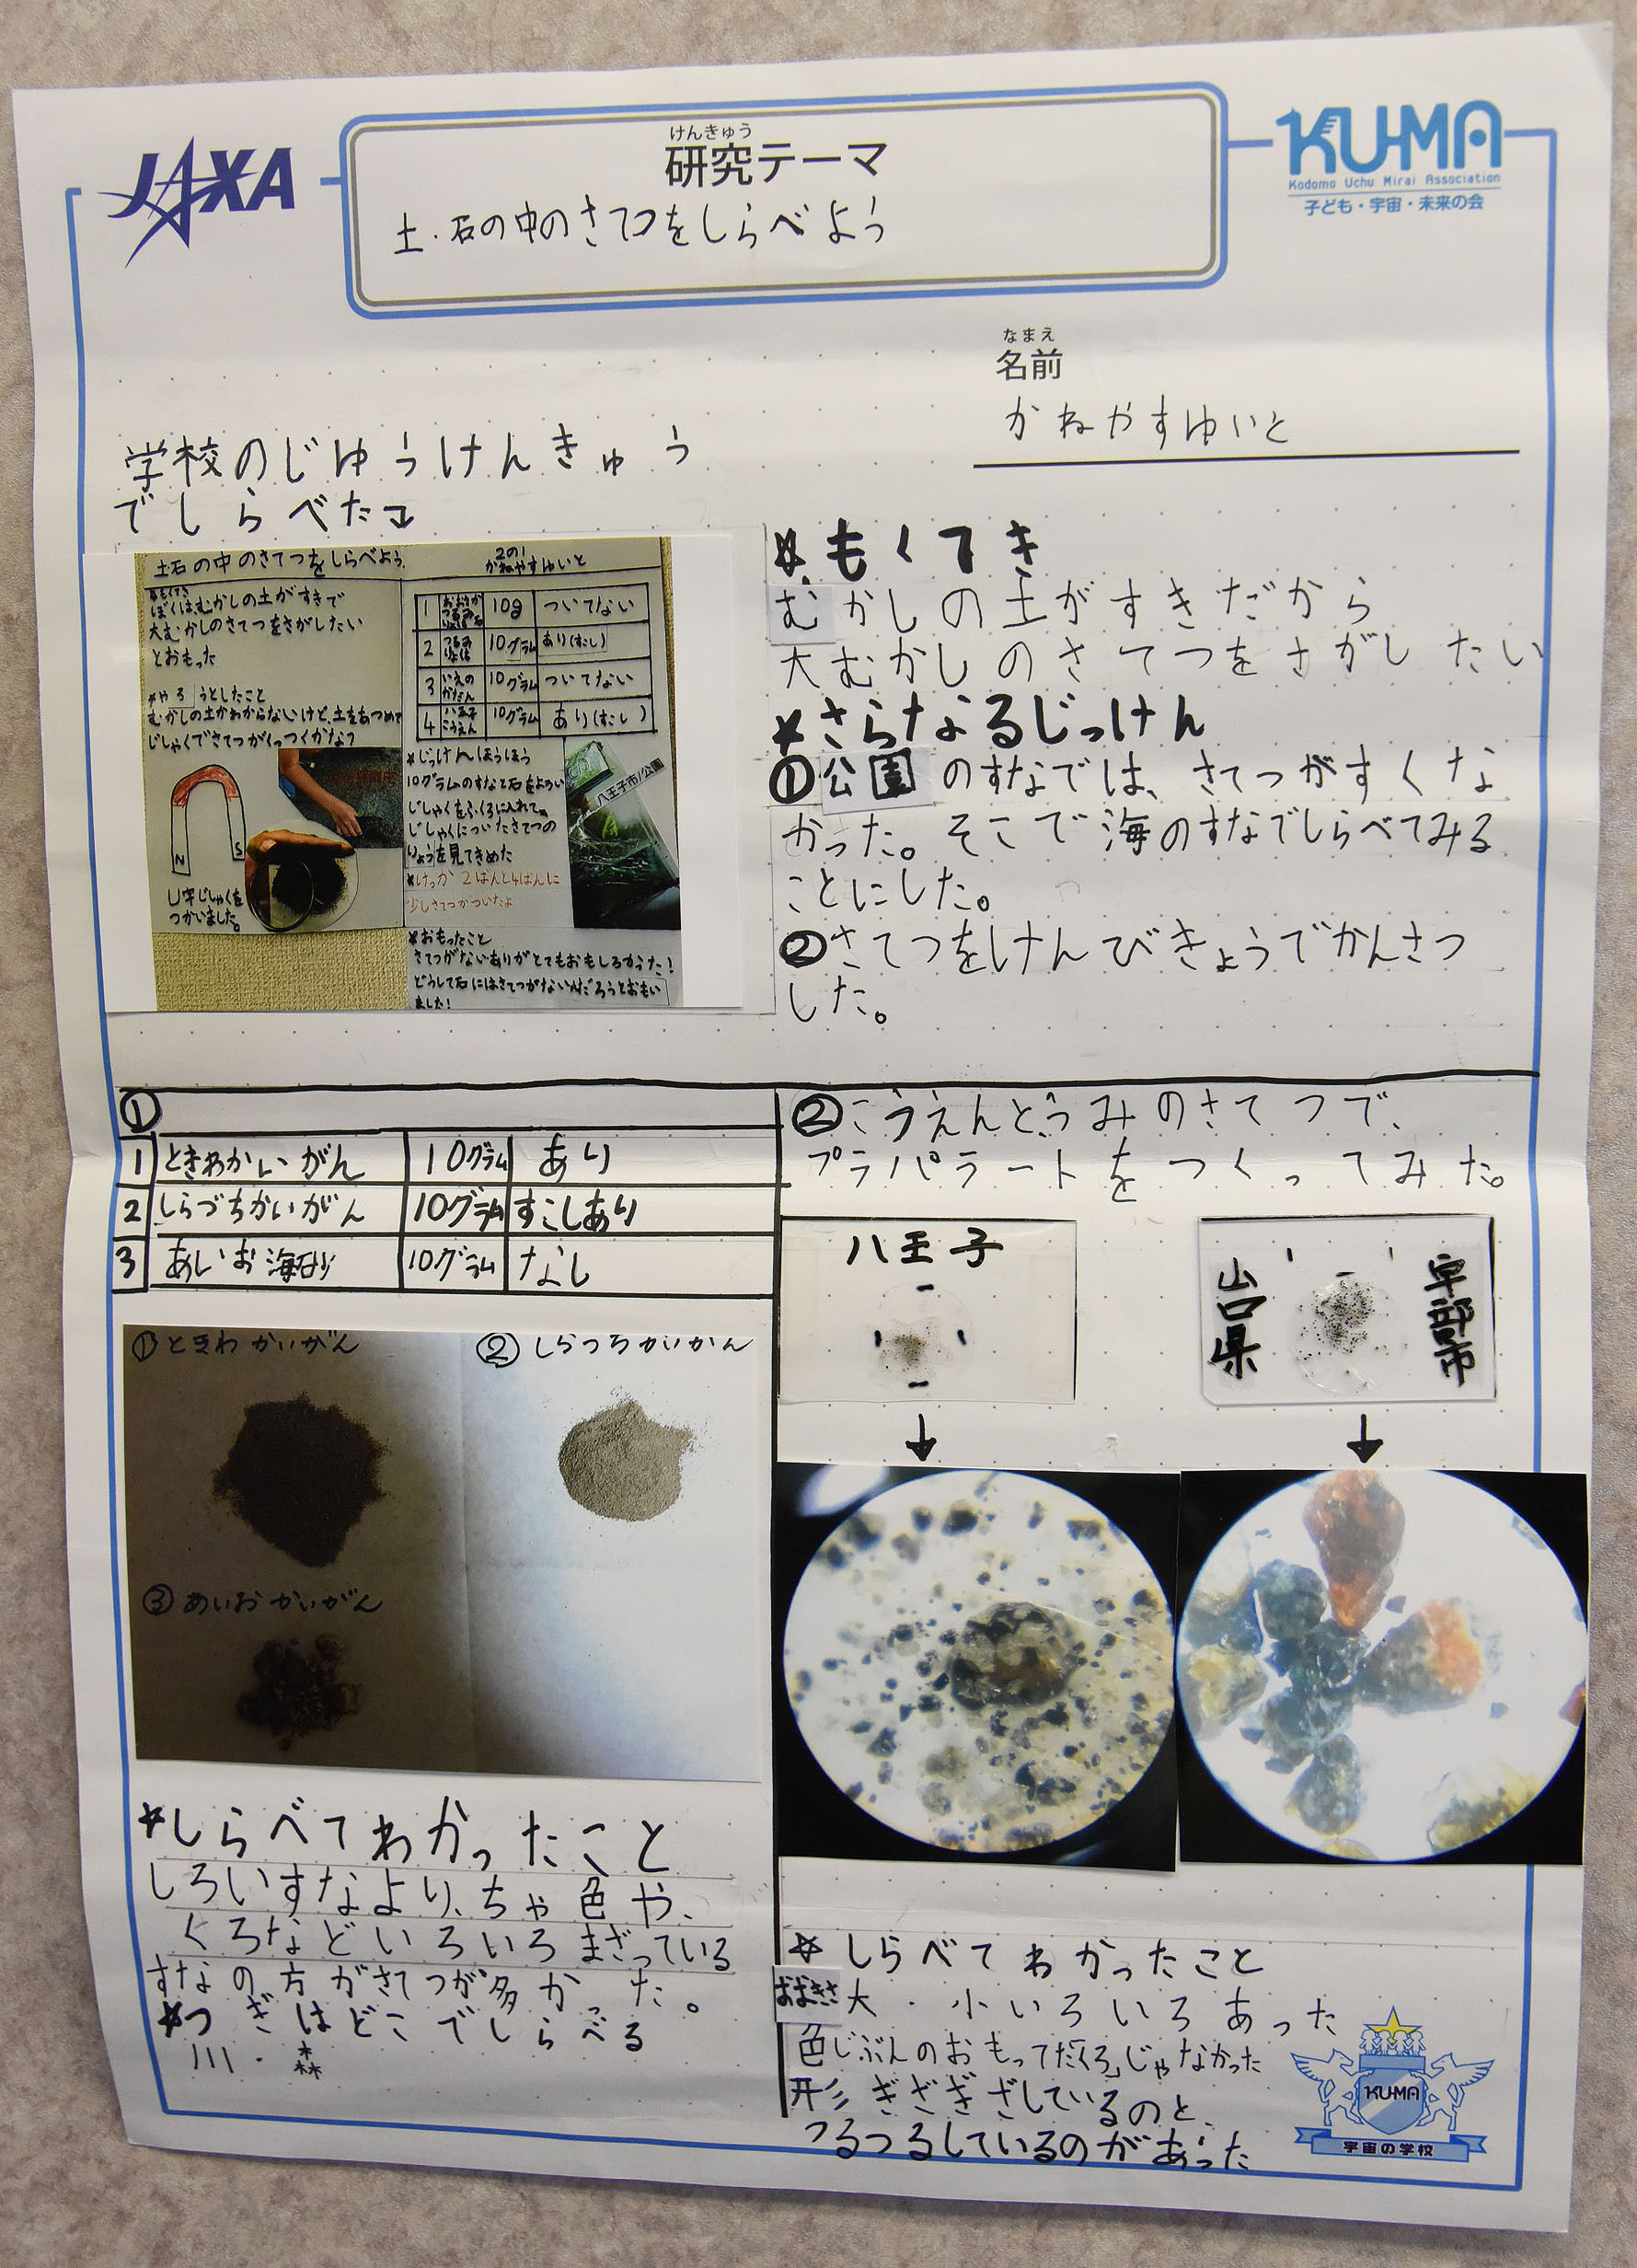 JAXA
けんきゅう
研究テーマ
土・石の中のさてつをしらべよう
KU-MA
Kodomo Uchu Mirai Association
子ども・宇宙・未来の会
なまえ
名前
かねやすゆいと
学校のじゆうけんきゅう
でしらべた
土石の中のさてつをしらべよう
2の1
かねやすゆいと
もくてき
ぼくはむかしの土がすきで
大むかしのさてつをさがしたい
とおもった
*やろうとしたこと
むかしの土かわからないけど、土をあつめて
じしゃくでさてつがくっつくかな?
N S
U字じしゃくを
つかいました。
1 10g ついてない
2 つるみ 10グラム あり(すこし)
3 いえの かだん 10グラム ついてない
4 八王子 こうえん 10グラム あり(すこし)
*じっけんほうほう
10グラムのすなと石をよういし
じしゃくをふくろに入れて。
じしゃくについたさてつの
りょうを見てきめた
*けっか 2ばんと4ばんに
少しさてつがついたよ
八王子市/公園
*おもったこと
さてつがないありがとてもおもしろかった!
どうして石にはさてつがないんだろうとおもい
ました!
*もくてき
むかしの土がすきだから
大むかしのさてつをさがしたい
*さらなるじっけん
①公園のすなでは、さてつがすくな
かった。そこで海のすなでしらべてみる
ことにした。
②さてつをけんびきょうでかんさつ
した。
①
1 ときわかいがん 10グラム あり
2 しらづちかいがん 10グラム すこしあり
3 あいお海砂 10グラム なし
①ときわかいがん
②しらつちかいかん
③あいおかいがん
*しらべてわかったこと
しろいすなより、ちゃ色や、
くろなどいろいろまざっている
すなの方がさてつが多かった。
*つぎはどこでしらべる
川・森
②こうえんとうみのさてつで、
プラパラートをつくってみた。
八王子
山口県
宇部市
*しらべてわかったこと
おおきさ大・小いろいろあった
色じぶんのおもってた「くろ」じゃなかった
形ぎざぎざしているのと、
つるつるしているのがあった
KU-MA
宇宙の学校